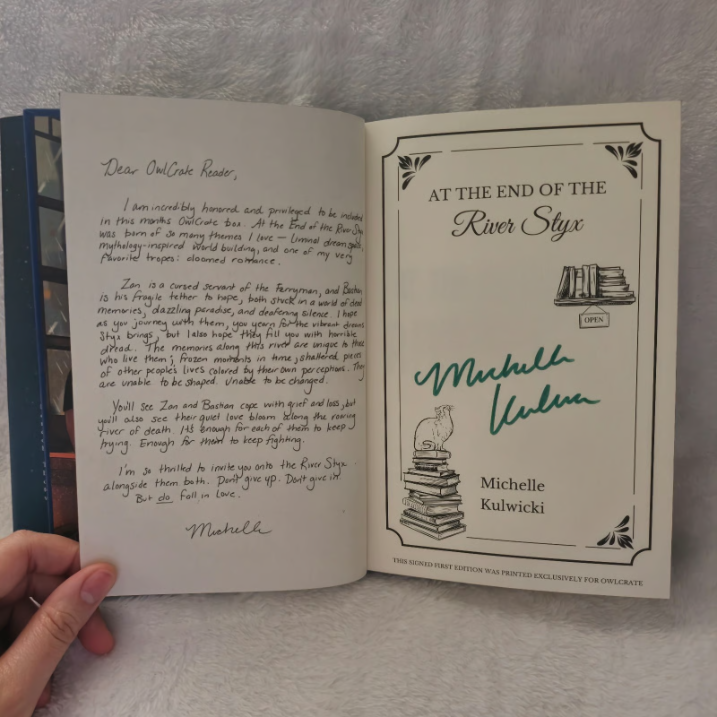 Dear OwlCrate Reader,
I am incredibly honored and privileged to be included
in this months OwlCrate box. At the End of the River Styx
was born of so many themes I love — liminal dream space,
mythology-inspired world building, and one of my very
favorite tropes: doomed romance.
Zan is a cursed servant of the Ferryman, and Bastian
is his fragile tether to hope, both stuck in a world of dead
memories, dazzling paradise, and deafening silence. I hope
as you journey with them, you yearn for the vibrant dreams
Styx brings, but I also hope they fill you with horrible
dread. The memories along this river are unique to those
who live them; frozen moments in time, shattered pieces
of other people's lives colored by their own perceptions. They
are unable to be shaped. Unable to be changed.
You'll see Zan and Bastian cope with grief and loss, but
you'll also see their quiet love bloom along the roaring
river of death. It's enough for each of them to keep
trying. Enough for them to keep fighting.
I'm so thrilled to invite you onto the River Styx
alongside them both. Don't give up. Don't give in.
But do fall in love.
Michelle
AT THE END OF THE
River Styx
OPEN
Michelle
Kulwicki
Michelle
Kulwicki
THIS SIGNED FIRST EDITION WAS PRINTED EXCLUSIVELY FOR OWLCRATE